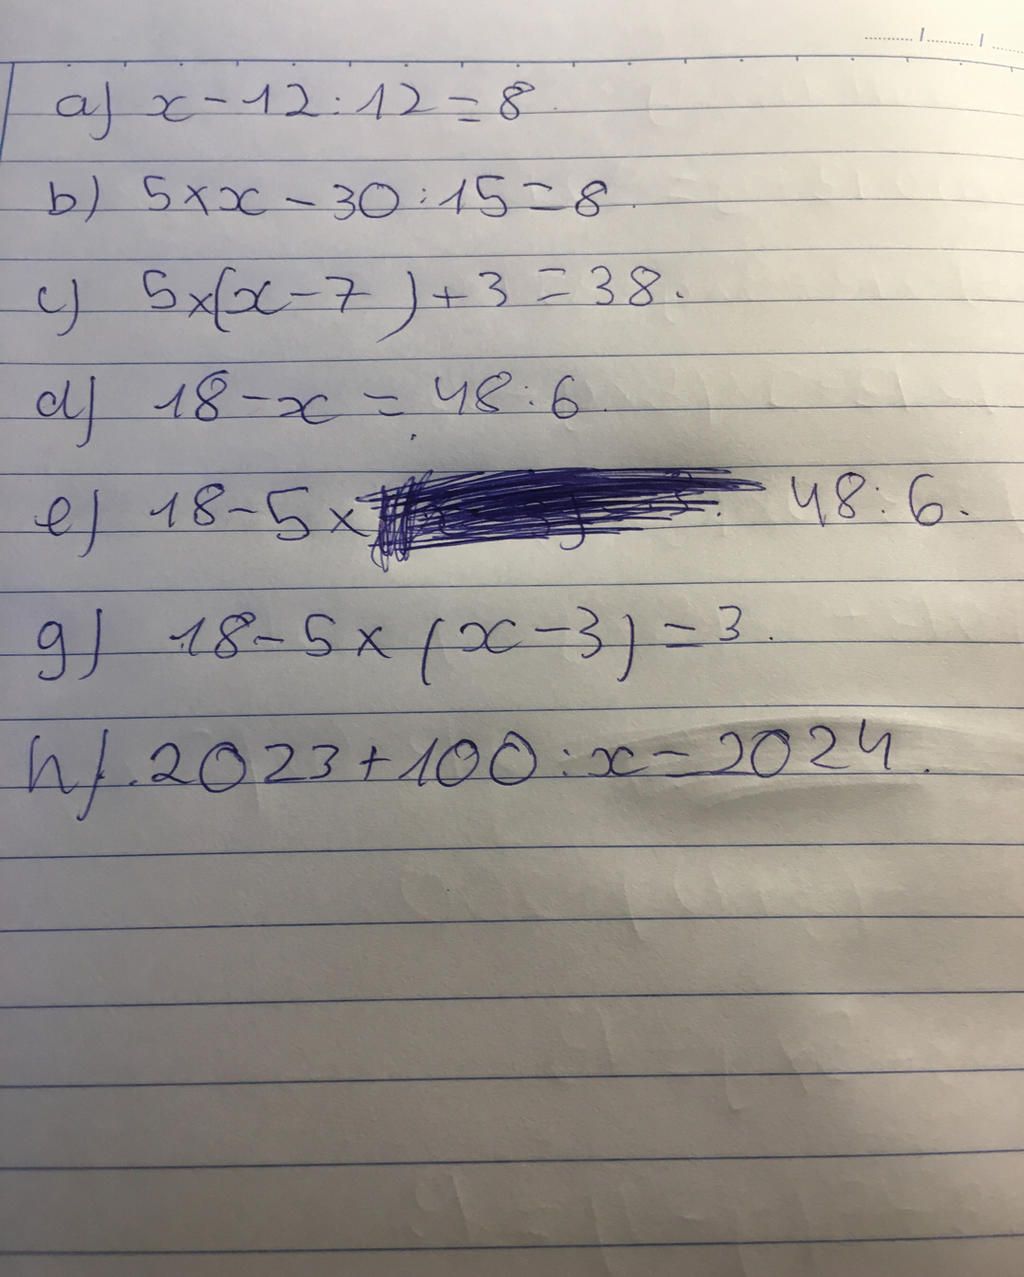 a) x - 12 : 12 = 8
b) 5 x x - 30 : 15 = 8.
c) 5 x (x - 7) + 3 = 38.
d) 18 - x = 48 : 6.
e) 18 - 5 x 48 : 6.
g) 18 - 5 x (x - 3) = 3.
h) 2023 + 100 : x = 2024.